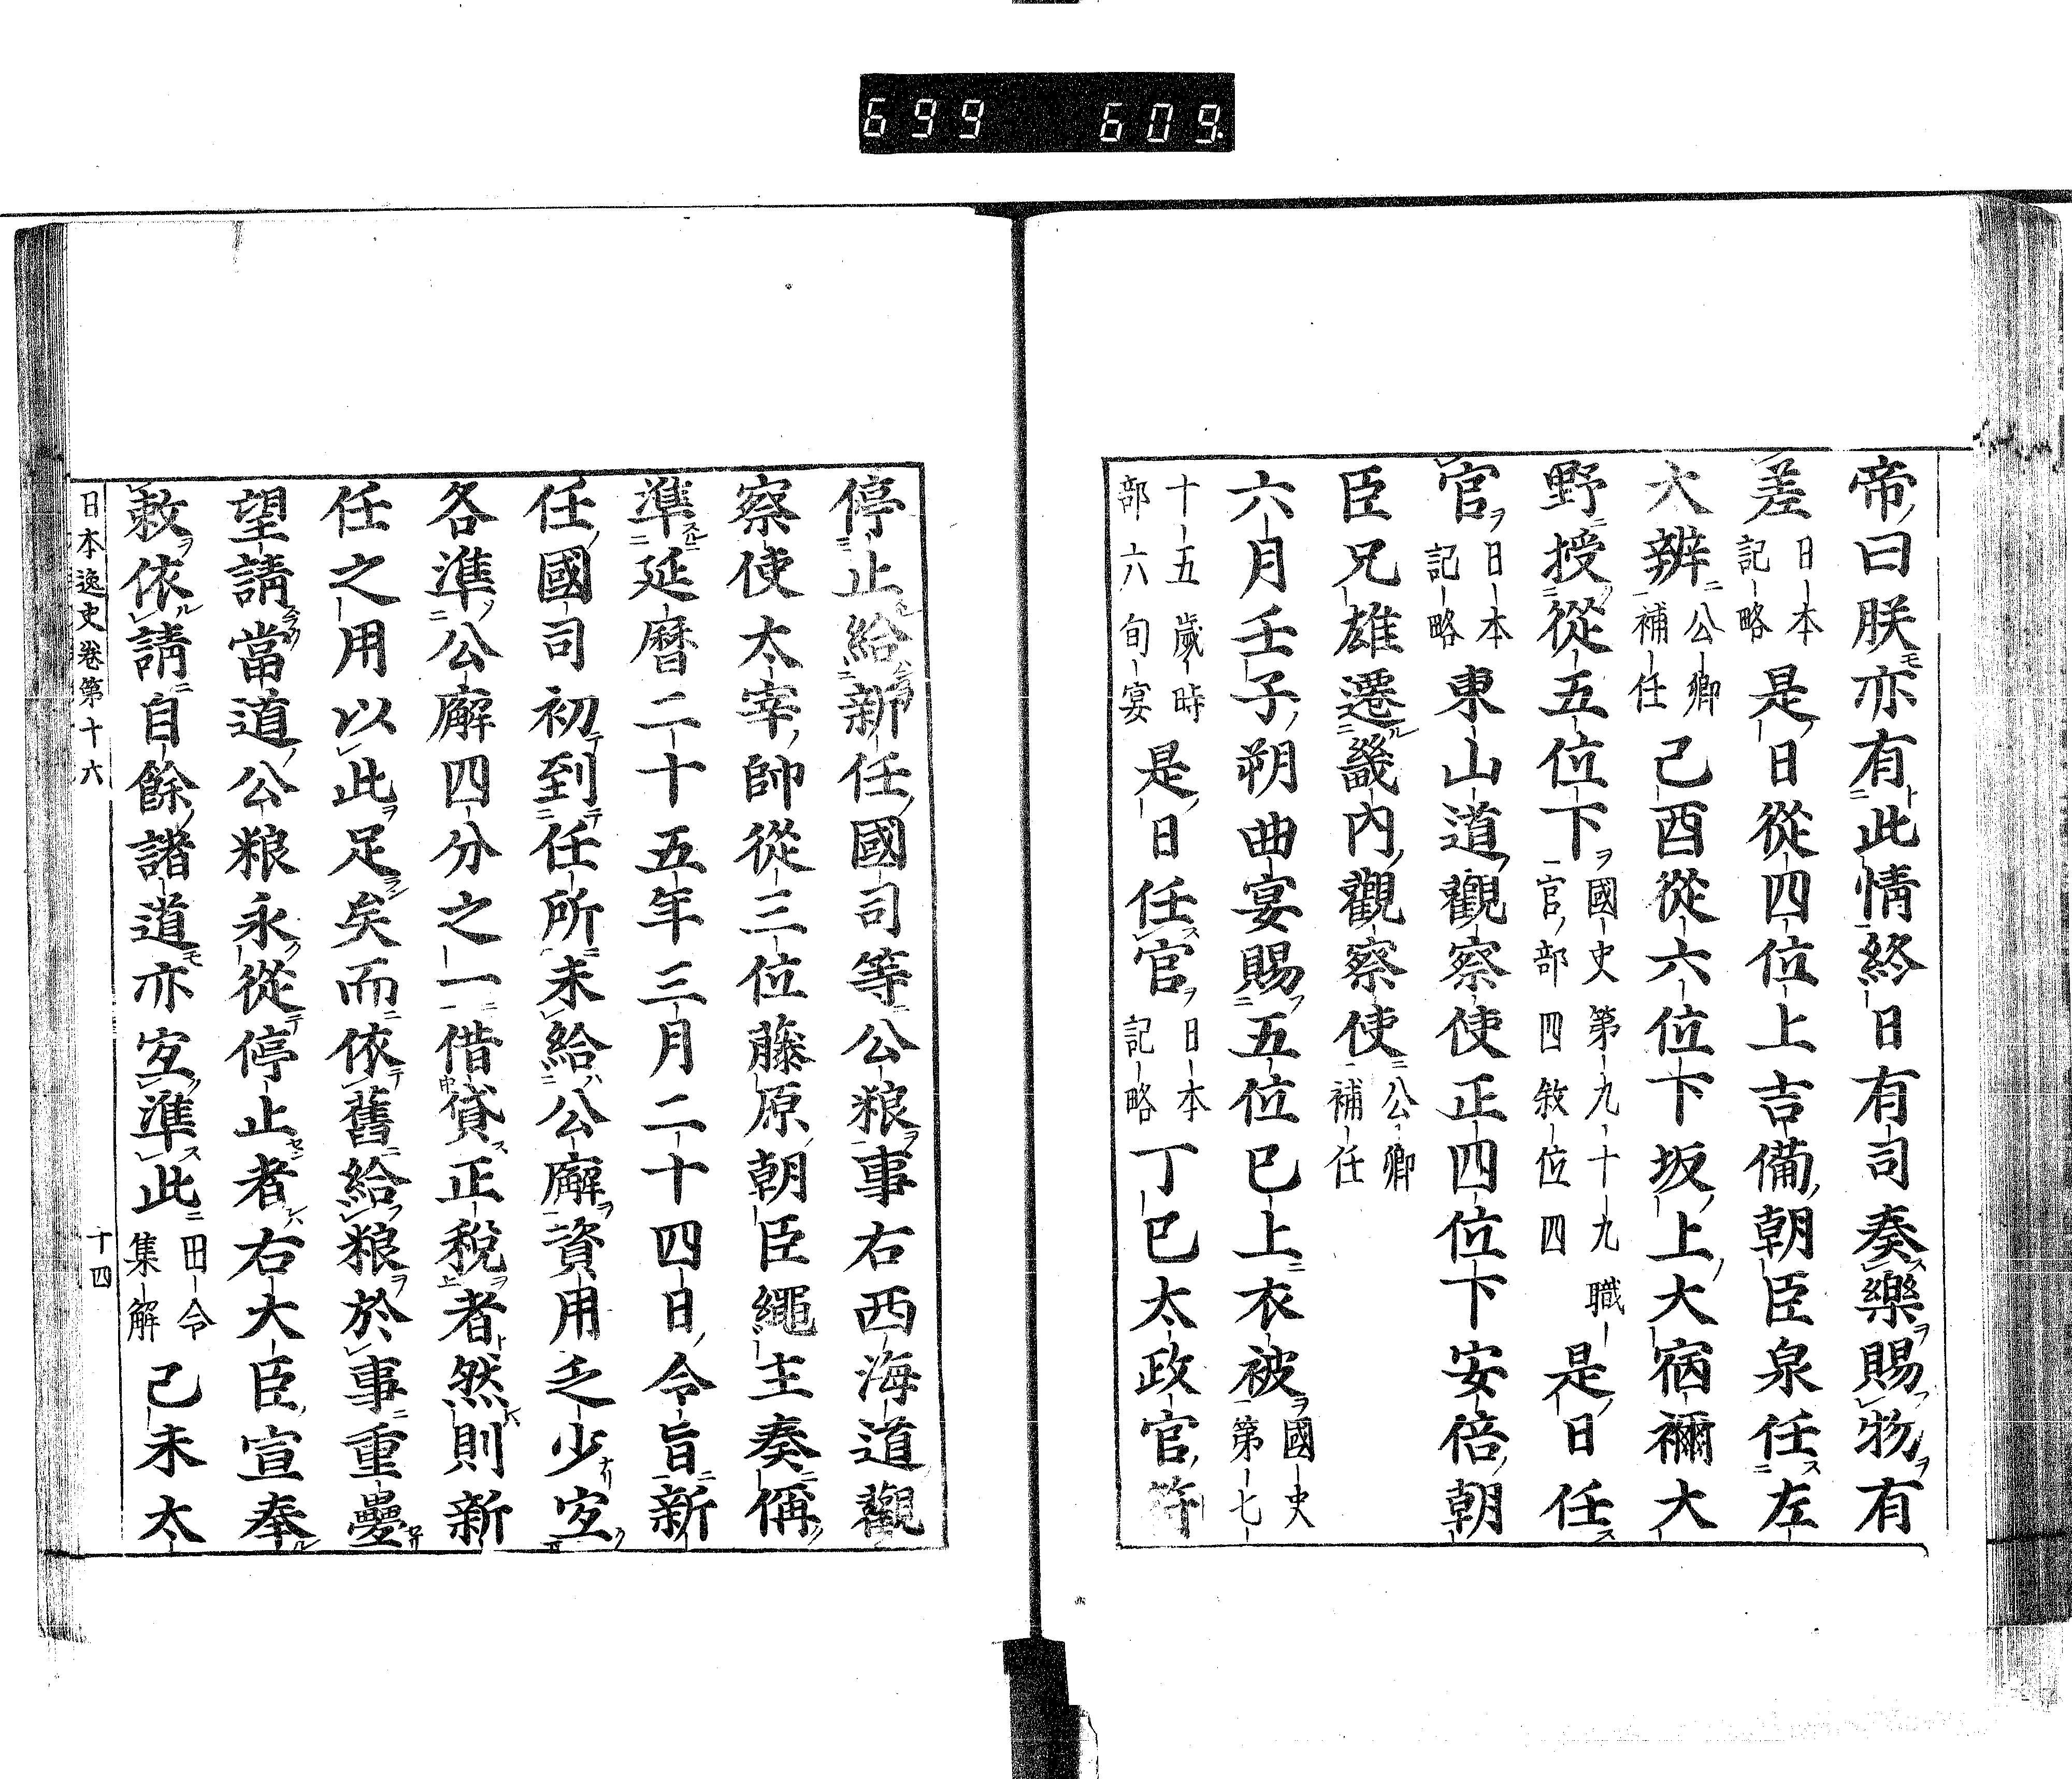 699 609
帝曰朕亦有此情終日有司奏樂賜物有
差日本記略是日從四位上吉備朝臣泉任左
大辨公卿補任己酉從六位下坂上大宿禰大
野授從五位下國史第九十九職官部四敘位四是日任
官日本記略東山道觀察使正四位下安倍朝
臣兄雄遷畿內觀察使公卿補任
六月壬子朔曲宴賜五位已上衣被國史第七
十五歲時部六旬宴是日任官日本記略丁巳太政官符
停止給新任國司等公粮事右西海道觀
察使太宰帥從三位藤原朝臣繩主奏偁
準延曆二十五年三月二十四日令旨新
任國司初到任所未給公廨資用乏少宜
各準公廨四分之一借貸正稅者然則新
任之用以此足矣而依舊給粮於事重疊
望請當道公粮永從停止者右大臣宣奉
敕依請自餘諸道亦宜準此田令集解己未太
日本逸史卷第十六 十四